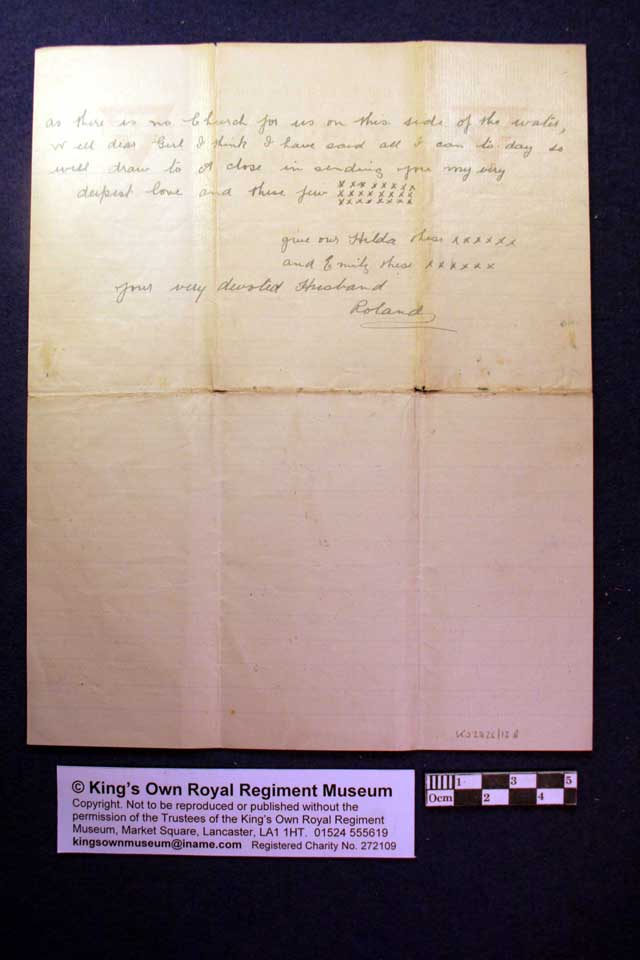 as there is no Church for us on this side of the water,
Well dear Girl I think I have said all I can to day so
will draw to A close in sending you my very
deepest love and these few xxxxxxxx
xxxxxxxx
xxxxxxxx
give our Hilda these xxxxxx
and Emily these xxxxxx
Your very devoted Husband
Roland
© King's Own Royal Regiment Museum
Copyright. Not to be reproduced or published without the
permission of the Trustees of the King's Own Royal Regiment
Museum, Market Square, Lancaster, LA1 1HT. 01524 555619
kingsownmuseum@iname.com Registered Charity No. 272109
0cm 1 2 3 4 5